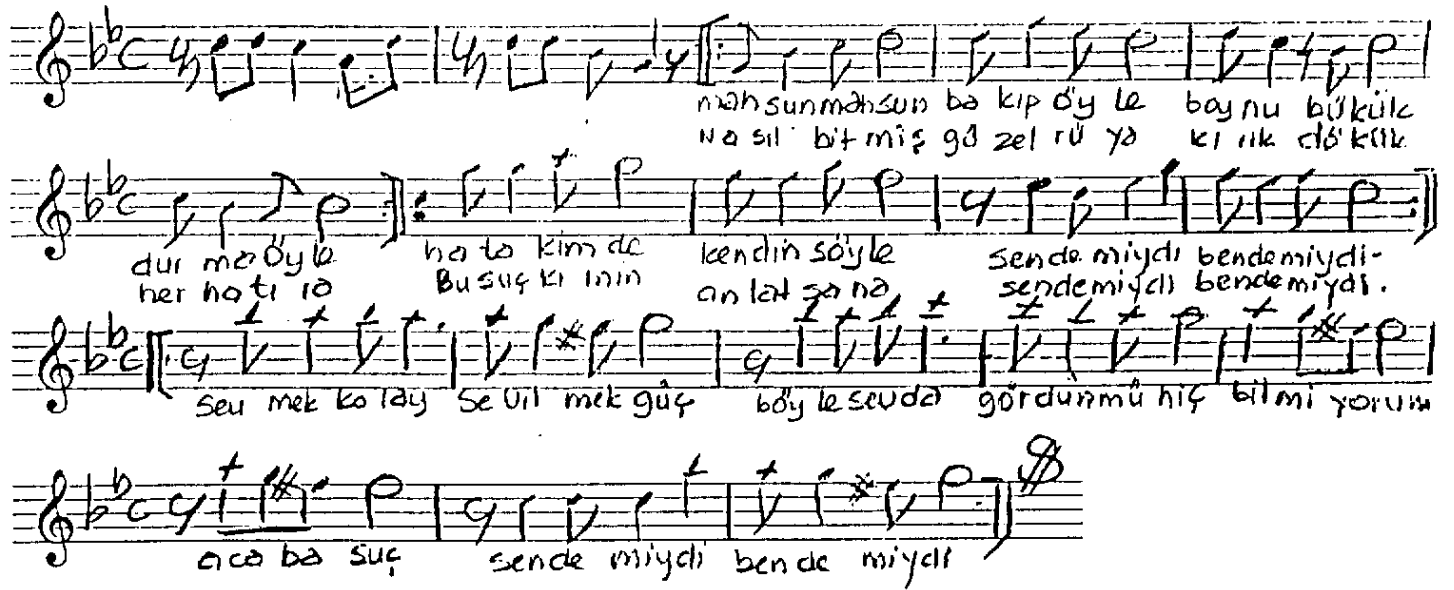 mahsun mahsun ba kıp öy le boy nu bükük
Na sıl bit miş gü zel rü ya kı rık dö kük
dur ma öy le ha ta kim de kendin söyle sende miydi bende miydi-
her ha tı ra Bu suç kı mın an lat sa na sende miydi bende miydi.
sev mek ko lay se vil mek güç böy le sevda gördün mü hiç bil mi yorum
aca ba suç sen de miydi ben de miydi